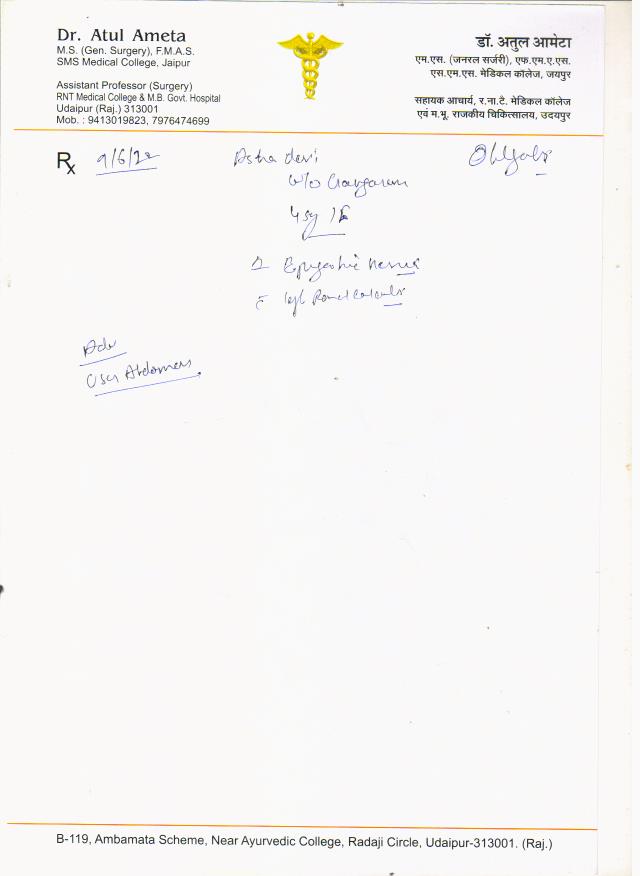 Dr. Atul Ameta
M.S. (Gen. Surgery), F.M.A.S.
SMS Medical College, Jaipur
Assistant Professor (Surgery)
RNT Medical College & M.B. Govt. Hospital
Udaipur (Raj.) 313001
Mob. : 9413019823, 7976474699
डॉ. अतुल आमेटा
एम.एस. (जनरल सर्जरी), एफ.एम.ए.एस.
एस.एम.एस. मेडिकल कॉलेज, जयपुर
सहायक आचार्य, र.ना.टे. मेडिकल कॉलेज
एवं म.भू. राजकीय चिकित्सालय, उदयपुर
Rx 9/6/22 devi
w/o
Epigastric Hernia
Adv
USG Abdomen
B-119, Ambamata Scheme, Near Ayurvedic College, Radaji Circle, Udaipur-313001. (Raj.)